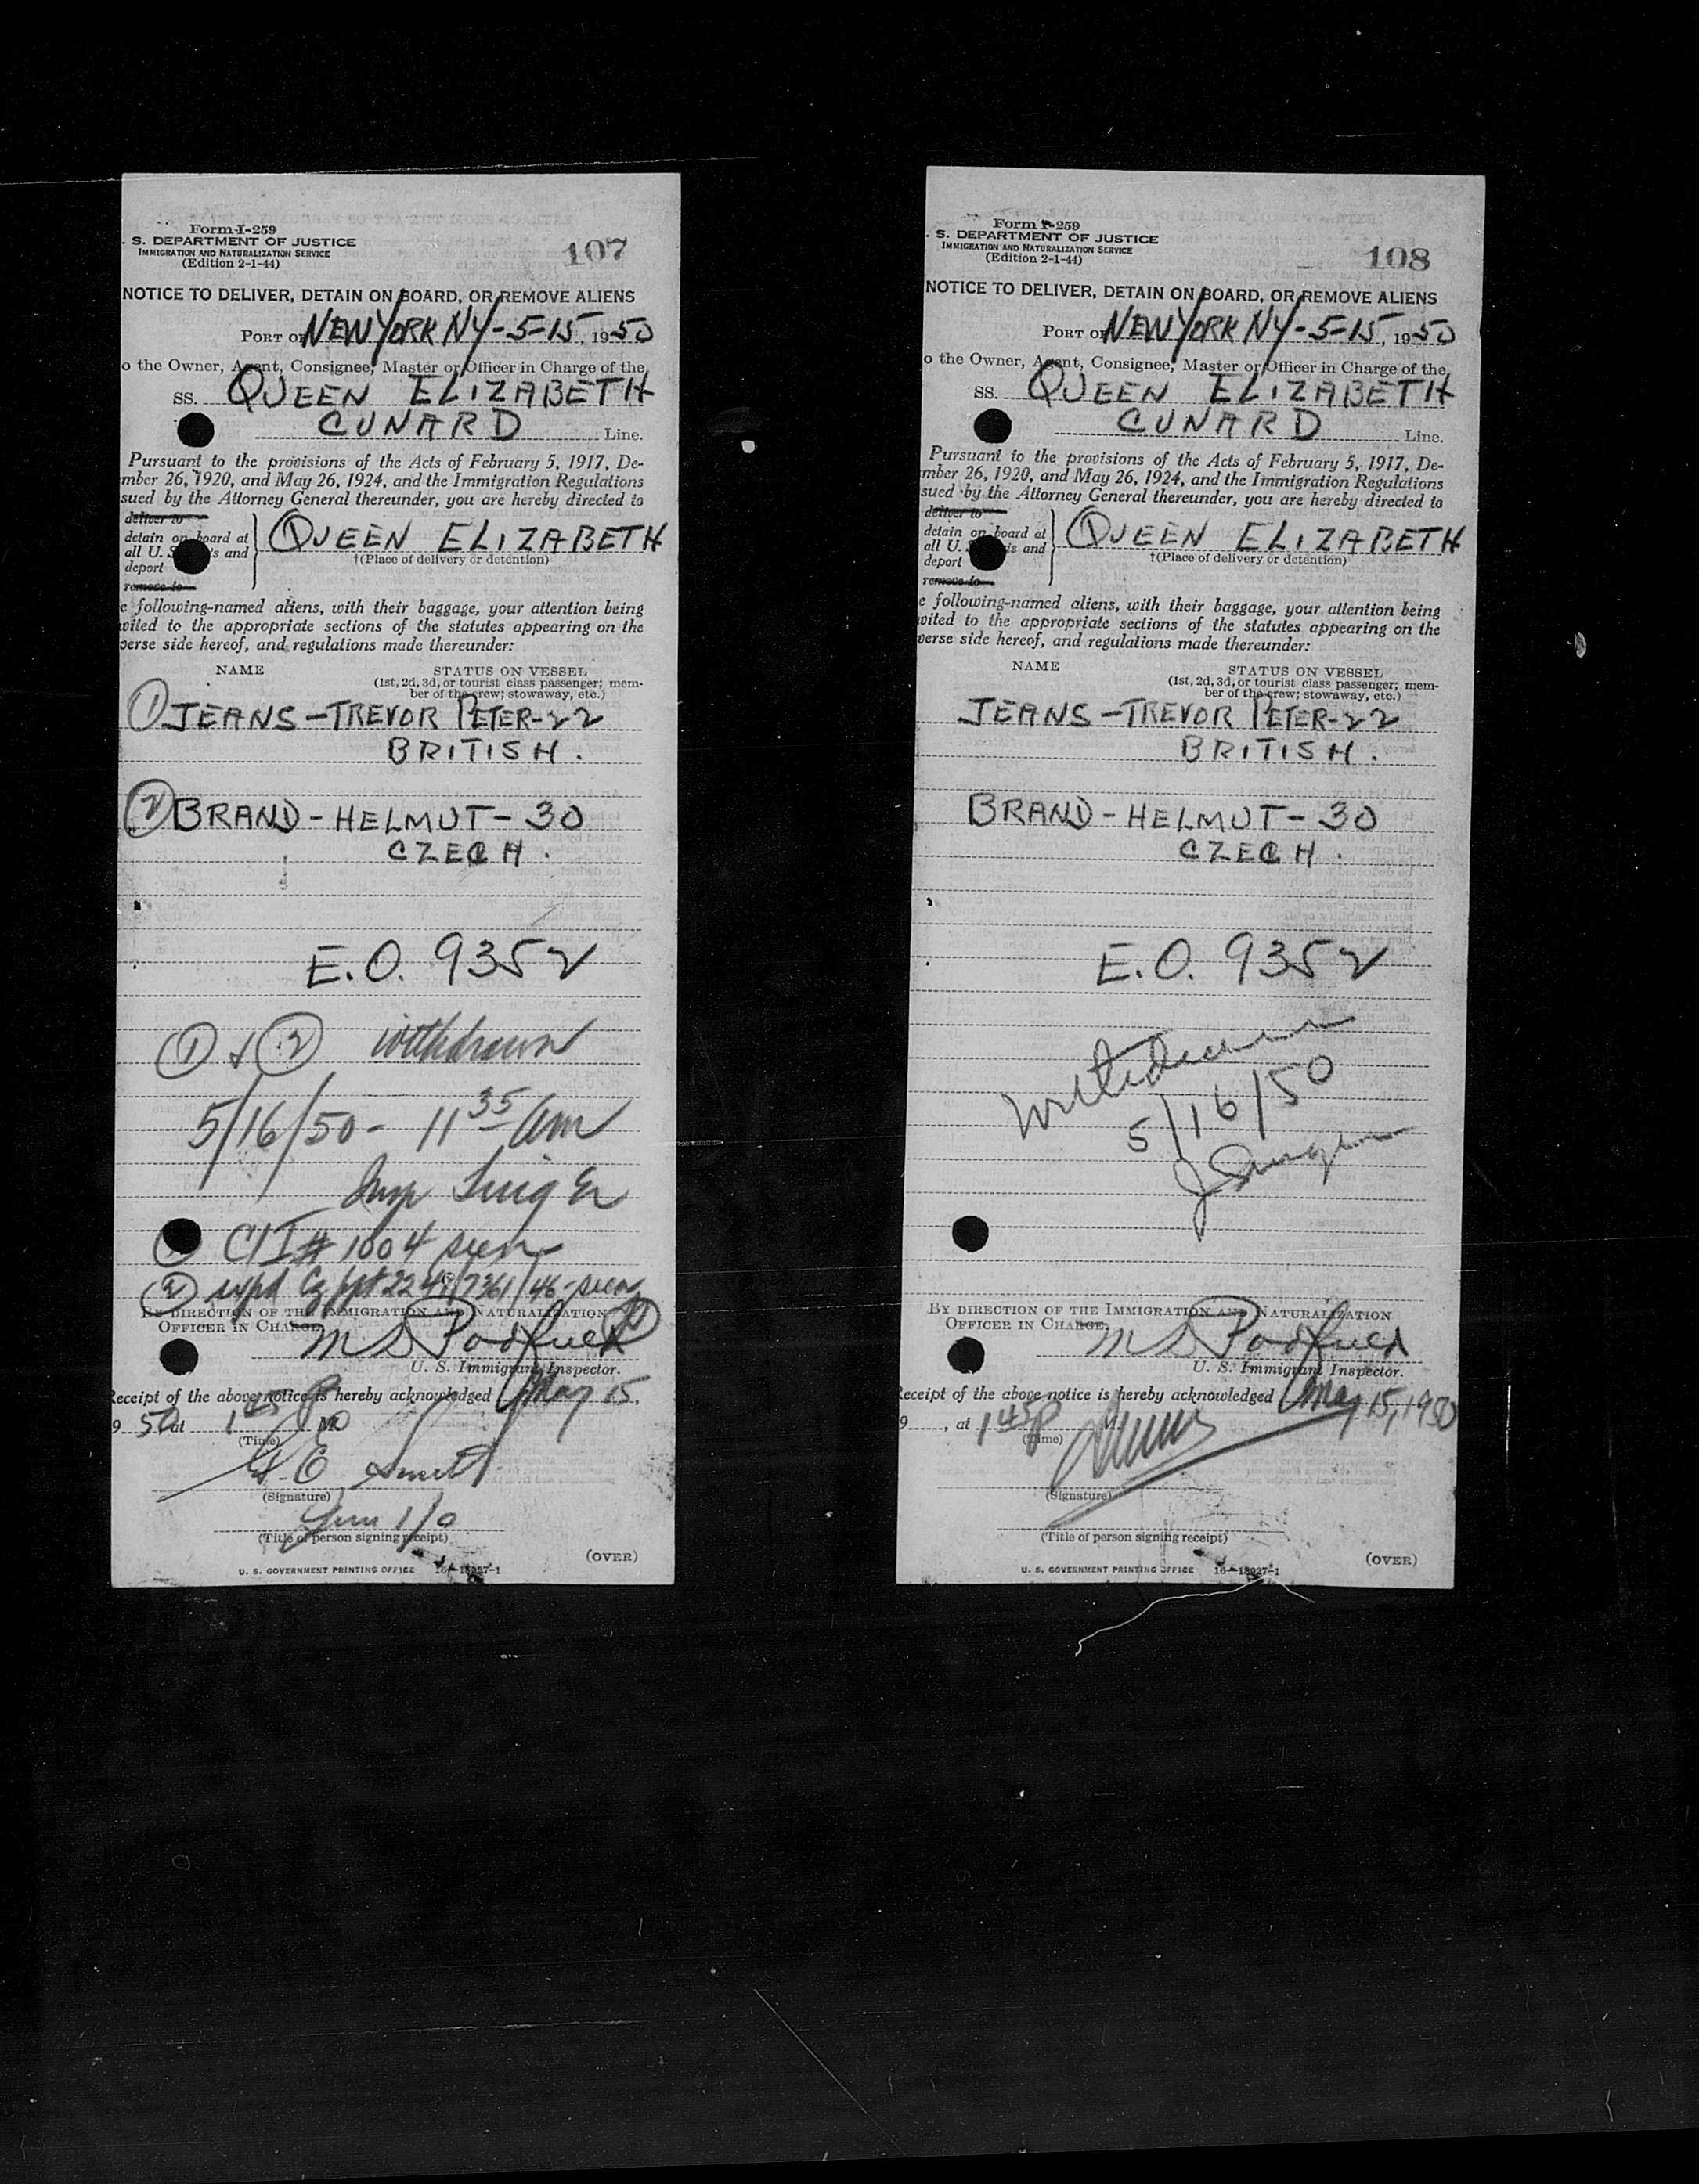 Form I-259
. S. DEPARTMENT OF JUSTICE
IMMIGRATION AND NATURALIZATION SERVICE
(Edition 2-1-44)
107
NOTICE TO DELIVER, DETAIN ON BOARD, OR REMOVE ALIENS
PORT OF NEW YORK NY - 5-15, 1950
o the Owner, Agent, Consignee, Master or Officer in Charge of the
SS. QUEEN ELIZABETH
CUNARD Line.
Pursuant to the provisions of the Acts of February 5, 1917, De-
mber 26, 1920, and May 26, 1924, and the Immigration Regulations
sued by the Attorney General thereunder, you are hereby directed to
deliver to
detain on board at
all U. S. is and
deport
remove to
QUEEN ELIZABETH
†(Place of delivery or detention)
e following-named aliens, with their baggage, your attention being
vited to the appropriate sections of the statutes appearing on the
verse side hereof, and regulations made thereunder:
NAME STATUS ON VESSEL
(1st, 2d, 3d, or tourist class passenger; mem-
ber of the crew; stowaway, etc.)
① JEANS - TREVOR PETER - 22
BRITISH.
② BRAND - HELMUT - 30
CZECH.
E.O. 9352
① + ② withdrawn
5/16/50 - 11 35 am
Insp Singer
① CII # 1004 seen
② Cz ppt 46 - seen
BY DIRECTION OF THE IMMIGRATION AND NATURALIZATION
OFFICER IN CHARGE.
M S Podfield
U. S. Immigrant Inspector.
Receipt of the above notice is hereby acknowledged May 15,
9 50 at 1 45 P M
(Time)
E
(Signature)
(Title of person signing receipt)
(OVER)
U. S. GOVERNMENT PRINTING OFFICE 16-18927-1
Form I-259
. S. DEPARTMENT OF JUSTICE
IMMIGRATION AND NATURALIZATION SERVICE
(Edition 2-1-44)
108
NOTICE TO DELIVER, DETAIN ON BOARD, OR REMOVE ALIENS
PORT OF NEW YORK NY - 5-15, 1950
o the Owner, Agent, Consignee, Master or Officer in Charge of the
SS. QUEEN ELIZABETH
CUNARD Line.
Pursuant to the provisions of the Acts of February 5, 1917, De-
mber 26, 1920, and May 26, 1924, and the Immigration Regulations
sued by the Attorney General thereunder, you are hereby directed to
deliver to
detain on board at
all U. is and
deport
remove to
QUEEN ELIZABETH
†(Place of delivery or detention)
e following-named aliens, with their baggage, your attention being
vited to the appropriate sections of the statutes appearing on the
verse side hereof, and regulations made thereunder:
NAME STATUS ON VESSEL
(1st, 2d, 3d, or tourist class passenger; mem-
ber of the crew; stowaway, etc.)
JEANS - TREVOR PETER - 22
BRITISH.
BRAND - HELMUT - 30
CZECH.
E.O. 9352
Withdrawn
5/16/50
J Singer
BY DIRECTION OF THE IMMIGRATION AND NATURALIZATION
OFFICER IN CHARGE.
M S Podfield
U. S. Immigrant Inspector.
Receipt of the above notice is hereby acknowledged May 15, 1950
9 , at 1 45 P
(Time)
(Signature)
(Title of person signing receipt)
(OVER)
U. S. GOVERNMENT PRINTING OFFICE 16-18927-1